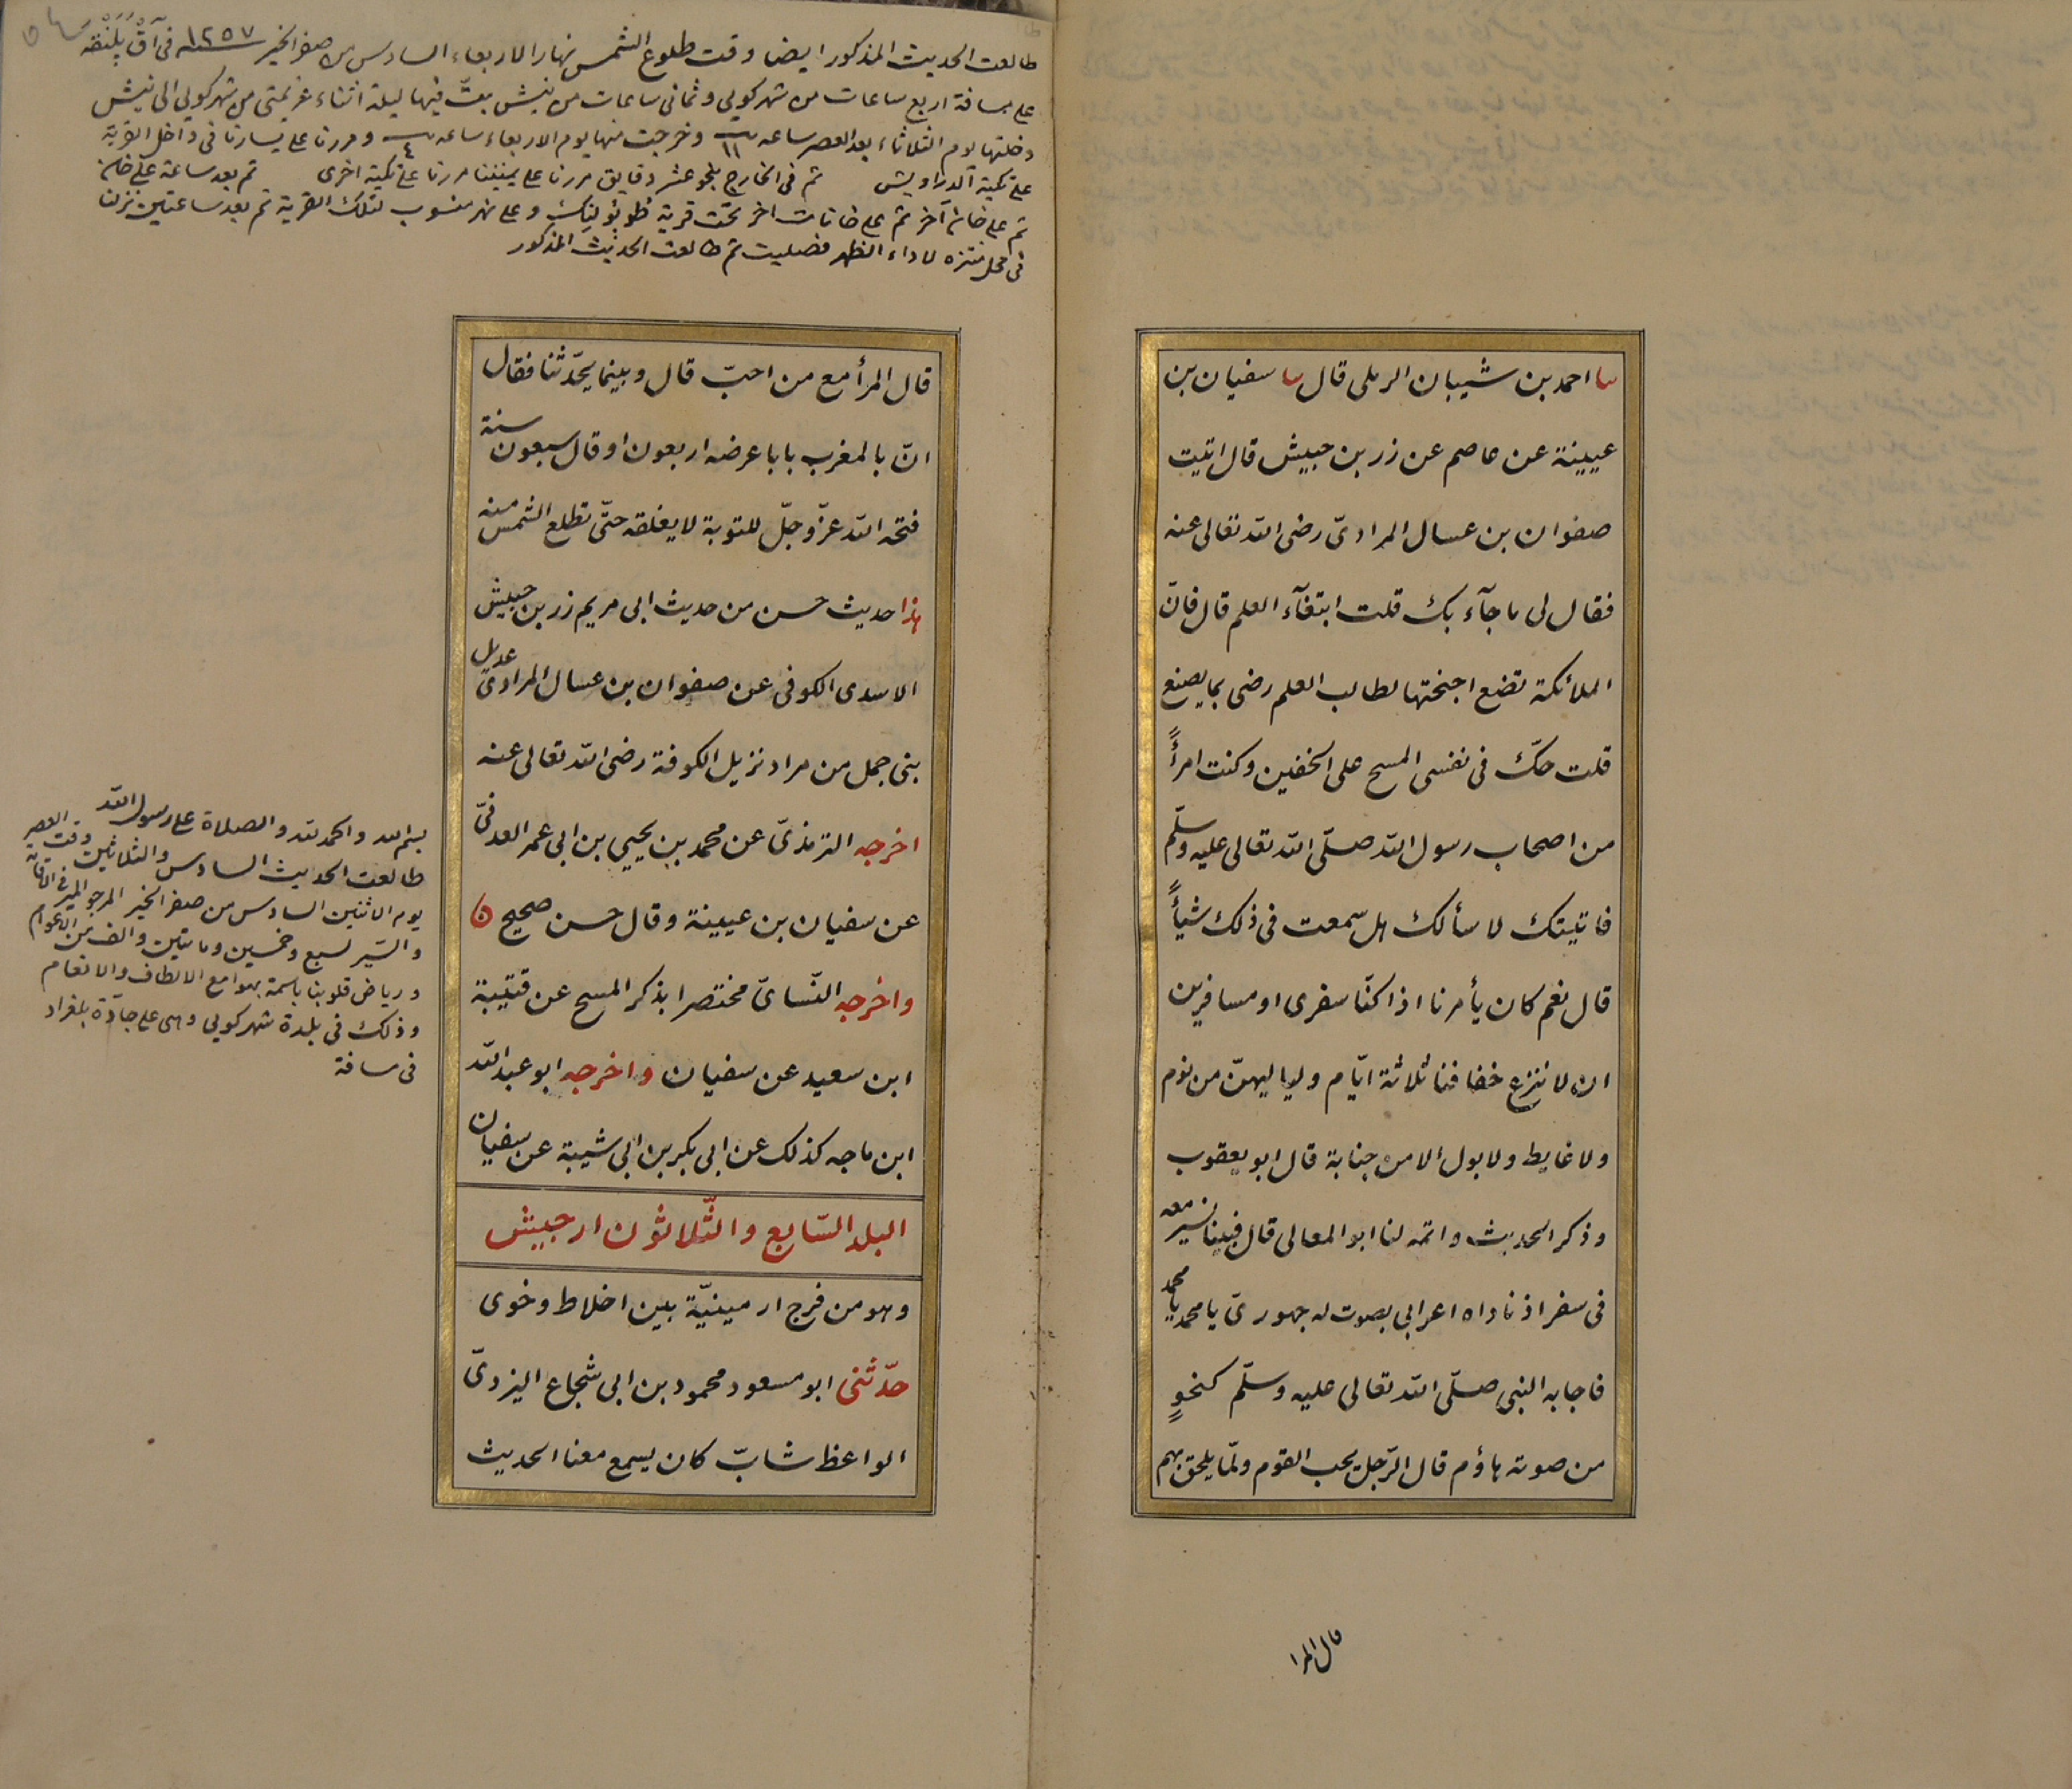 ثنا احمد بن شيبان الرملى قال ثنا سفيان بن
عيينة عن عاصم عن زر بن حبيش قال اتيت
صفوان بن عسال المرادىّ رضى الله تعالى عنه
فقال لى ما جآء بك قلت ابتغآء العلم قال فانّ
الملائكة تضع اجنحتها لطالب العلم رضى بما يصنع
قلت حكّ فى نفسى المسح على الخفين وكنت امرأً
من اصحاب رسول الله صلّى الله تعالى عليه وسلّم
فاتيتك لاسألك هل سمعت فى ذلك شيأً
قال نعم كان يأمرنا اذا كنّا سفرى او مسافرين
ان لا ننزع خفافنا ثلاثة ايّام ولياليهنّ من نوم
ولا غايط ولا بول الا من جنابة قال ابو يعقوب
وذكر الحديث واتمه لنا ابو المعالى قال فبينا نسير معه
فى سفر اذ ناداه اعرابى بصوت له جهورىّ يا محمد يا محمد
فاجابه النبى صلّى الله تعالى عليه وسلّم كنحوٍ
من صوته هاؤم قال الرّجل يحب القوم ولمّا يلحق بهم
قال المرا
طالعت الحديث المذكور ايضا وقت طلوع الشمس نهار الاربعاء السادس من صفر الخير سنه ١٢٥٧ فى آق پلنقه
على مسافة اربع ساعات من شهركويى وثمانى ساعات من نيش بتّ فيها ليلة اثناء عزيمتى من شهركويى الى نيش
دخلتها يوم الثلاثاء بعد العصر ساعه ١١ وخرجت منها يوم الاربعاء ساعه ٤ ومررنا على يسارنا فى داخل القرية
على تكية الدراويش ثم فى الخارج بنحو عشر دقايق مررنا على يميننا مررنا على تكية اخرى ثم بعد ساعة على خان
ثم على خان آخر ثم على خانات اخر تحت قرية وعلى نهر منسوب لتلك القرية ثم بعد ساعتين نزلنا
فى محل متنزه لاداء الظهر فصليت ثم طالعت الحديث المذكور
قال المرأ مع من احبّ قال وبينما يحدّثنا فقال
انّ بالمغرب بابا عرضه اربعون او قال سبعون سنة
فتحه الله عزّ وجلّ للتوبة لا يغلقه حتّى تطلع الشمس منه
هذا حديث حسن من حديث ابى مريم زر بن حبيش
الاسدى الكوفى عن صفوان بن عسال المرادىّ عديل
بنى جمل من مراد نزيل الكوفة رضى الله تعالى عنه
اخرجه الترمذىّ عن محمد بن يحيى بن ابى عمر العدنىّ
عن سفيان بن عيينة وقال حسن صحيح
واخرجه النّساىّ مختصرا بذكر المسح عن قتيبة
ابن سعيد عن سفيان واخرجه ابو عبد الله
ابن ماجه كذلك عن ابى بكر بن ابى شيبة عن سفيان
البلد السّابع والثّلاثون ارجيش
وهو من فرج ارمينيّة بين اخلاط وخوى
حدّثنى ابو مسعود محمود بن ابى شجاع اليزدىّ
الواعظ شابّ كان يسمع معنا الحديث
بسم الله والحمد لله والصلاة على رسول الله
طالعت الحديث السادس والثلاثين وقت العصر
يوم الاثنين السادس من صفر الخير المرجو
والسّير لسبع وخمسين ومائتين والف من الاعوام
ورياض قلوبنا باسمة بهوامع الالطاف والانعام
وذلك فى بلدة شهركويى وهى على جادّة بلغراد
فى مسافة